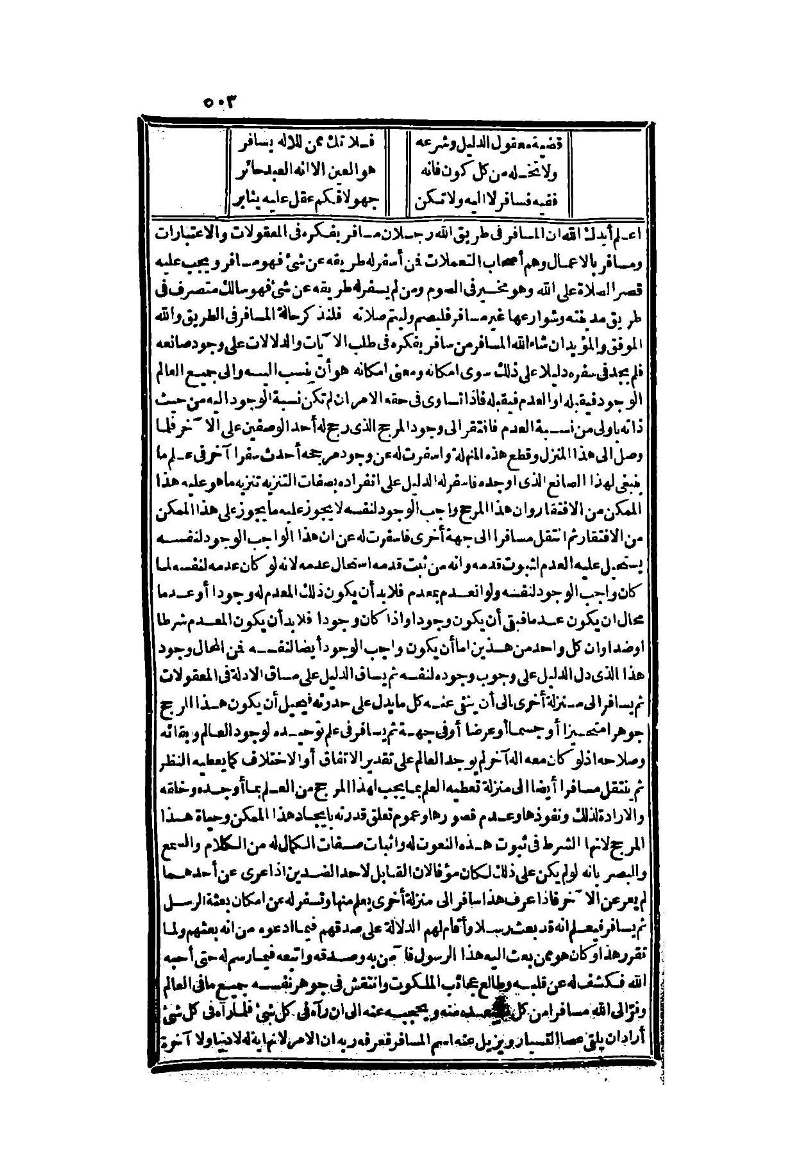 ٥٠٣
قضية معقول الدليل وشرعه فلا تك ممن للاله يسافر
ولا تخله من كل كون فانه هو العين الا انه العبد حائر
ففيه فسافر لا اليه ولا تكن جهولا فكم عقل عليه يثابر
اعلم أيدك الله ان المسافر فى طريق الله رجلان مسافر بفكره فى المعقولات والاعتبارات
ومسافر بالاعمال وهم أصحاب اليعملات فمن أسفر له طريقه عن شئ فهو مسافر ويجب عليه
قصر الصلاة على الله وهو مخير فى الصوم ومن لم يسفر له طريقه عن شئ فهو سالك متصرف فى
طريق مدينته وشوارعها غير مسافر فليصم وليتم صلاته فلنذكر حالة المسافر فى الطريق والله
الموفق والمؤيد ان شاء الله المسافر من سافر بفكره فى طلب الآيات والدلالات على وجود صانعه
فلم يجد فى سفره دليلا على ذلك سوى امكانه ومعنى امكانه هو أن ينسب اليه والى جميع العالم
الوجود فيقبله او العدم فيقبله فاذا تساوى فى حقه الامران لم تكن نسبة الوجود اليه من حيث
ذاته باولى من نسبة العدم فافتقر الى وجود المرجح الذى رجح له أحد الوصفين على الآخر فلما
وصل الى هذا المنزل وقطع هذه المنهلة واسفرت له عن وجود مرجحه أحدث سفرا آخر فى علم ما
ينبغى لهذا الصانع الذى اوجده فاسفر له الدليل على انفراده بصفات التنزيه تنزيه ما هو عليه هذا
الممكن من الافتقار وان هذا المرجح واجب الوجود لنفسه لا يجوز عليه ما يجوز على هذا الممكن
من الافتقار ثم انتقل مسافرا الى جهة أخرى فاسفرت له عن ان هذا الواجب الوجود لنفسه
يستحيل عليه العدم لثبوت قدمه وانه من ثبت قدمه استحال عدمه لانه لو كان عدمه لنفسه لما
كان واجب الوجود لنفسه ولو انعدم بمعدم فلا بد أن يكون ذلك المعدم له وجودا أو عدما
محال ان يكون عدما فبقى أن يكون وجودا واذا كان وجودا فلا بد أن يكون المعدم شرطا
او ضدا وان كل واحد من هذين اما أن يكون واجب الوجود أيضا لنفسه فمن المحال وجود
هذا الذى دل الدليل على وجوب وجوده لنفسه ثم يساق الدليل على مساق الادلة فى المعقولات
ثم يسافر الى منزلة أخرى الى أن ينفى عنه كل ما يدل على حدوثه فيحيل أن يكون هذا المرجح
جوهرا متحيزا أو جسما أو عرضا أو فى جهة ثم يسافر فى علم توحيده لوجود العالم وبقائه
وصلاحه اذ لو كان معه اله آخر لم يوجد العالم على تقدير الاتفاق أو الاختلاف كما يعطيه النظر
ثم ينتقل مسافرا أيضا الى منزلة تعطيه العلم بما يجب لهذا المرجح من العلم بما أوجده وخلقه
والارادة لذلك ونفوذها وعدم قصورها وعموم تعلق قدرته بايجاد هذا الممكن وحياة هذا
المرجح لانها الشرط فى ثبوت هذه النعوت له واثبات صفات الكمال له من الكلام والسمع
والبصر بانه لو لم يكن على ذلك لكان مؤفا لان القابل لاحد الضدين اذا عرى عن أحدهما
لم يعر عن الآخر فاذا عرف هذا سافر الى منزلة أخرى يعلم منها وتسفر له عن امكان بعثة الرسل
ثم يسافر فيعلم انه قد بعث رسلا وأقام لهم الدلالة على صدقهم فيما ادعوه من انه بعثهم ولما
تقرر هذا وكان هو ممن بعث اليه هذا الرسول فآمن به وصدقه واتبعه فيما رسم له حتى أحبه
الله فكشف له عن قلبه وطالع عجائب الملكوت وانتقش فى جوهر نفسه جميع ما فى العالم
وفرّ الى الله مسافرا من كل يبعده منه ويحجبه عنه الى ان رآه فى كل شئ فلما رآه فى كل شئ
أراد ان يلقى عصا التسيار ويزيل عنه اسم المسافر فعرفه ربه ان الامر لانهاية له لا دنيا ولا آخرة